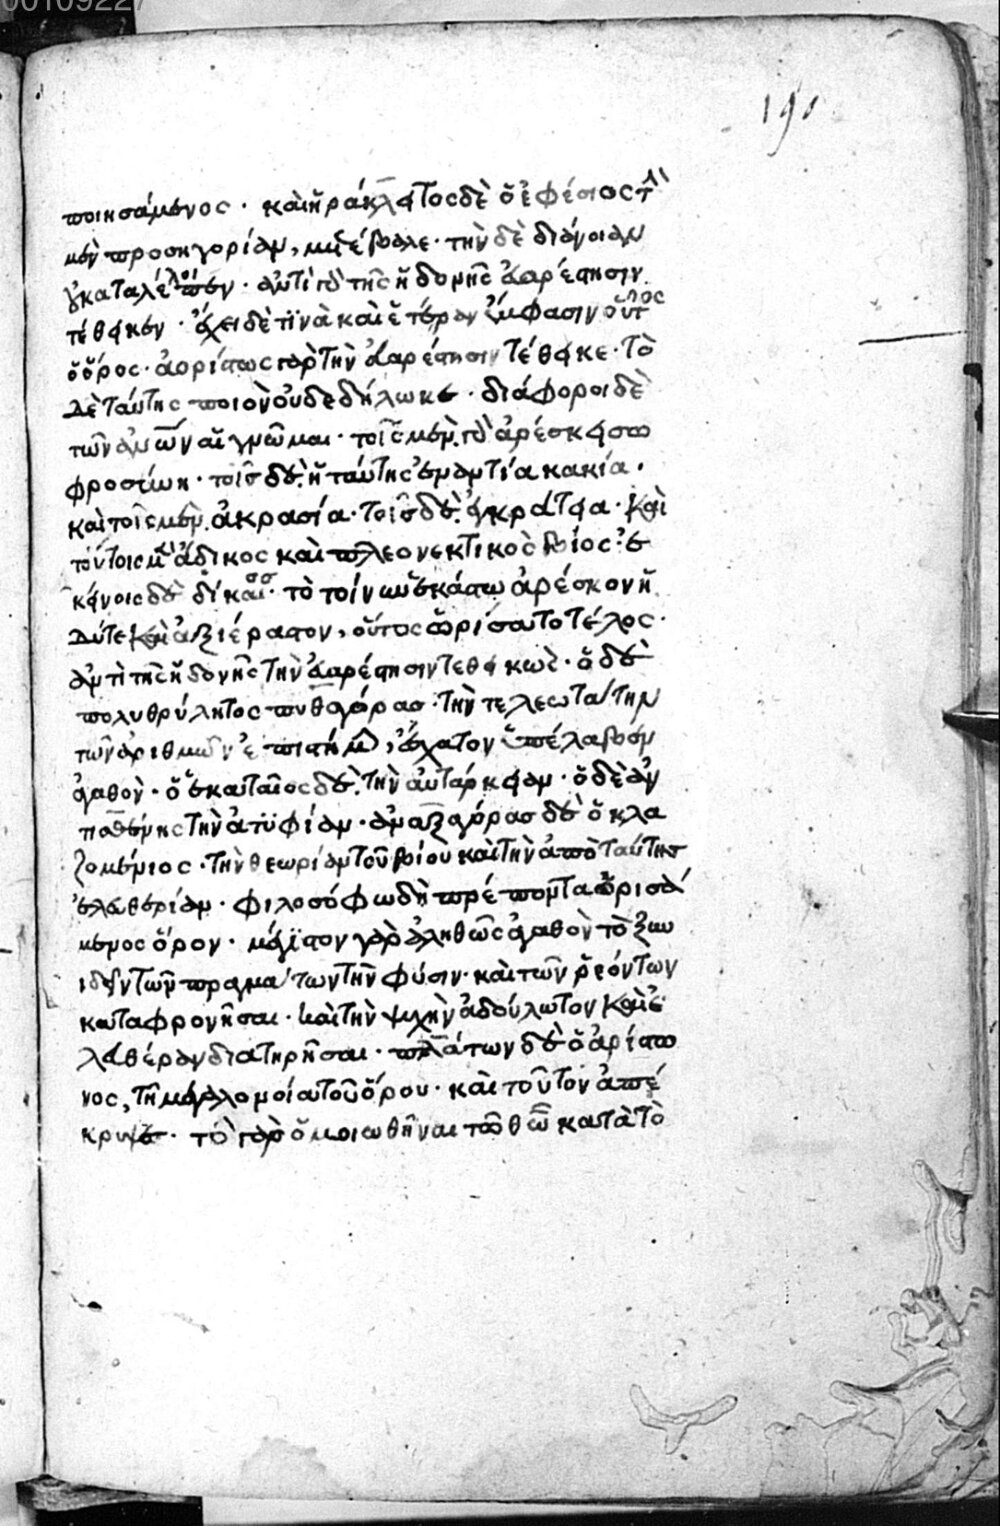 00109227
191
ποιησάμενος · καὶ ἡράκλειτος δὲ ὁ ἐφέσιος τὴν
μὲν προσηγορίαν, μετέβαλε · τὴν δὲ διάνοιαν
καταλέλοιπεν · ἀντὶ γὰρ τῆς ἡδονῆς εὐαρέστησιν
τέθεικεν · ἔχει δὲ τινὰ καὶ ἑτέραν ἔμφασιν οὗτος
ὁ ὅρος · ἀορίστως γὰρ τὴν εὐαρέστησιν τέθεικε · τὸ
δὲ ταύτης ποιὸν οὐ δεδήλωκε · διάφοροι δὲ
τῶν ἀνων αἱ γνῶμαι · τοῖς μὲν γὰρ ἀρέσκει σω
φροσύνη · τοῖς δὲ ἡ ταύτης ἐναντία κακία ·
καὶ τοῖς μὲν ἀκρασία · τοῖς δὲ ἐγκράτεια · καὶ
τούτοις μὲν ἄδικος καὶ πλεονεκτικὸς βίος · ἐ
κείνοις δὲ δίκαιος · τὸ τοίνυν ἑκάστω ἀρέσκον ἡ
δύτε καὶ ἀξιέραστον, οὗτος ὡρίσατο τέλος ·
ἀντὶ τῆς ἡδονῆς τὴν εὐαρέστησιν τεθεικὼς · ὁ δὲ
πολυθρύλητος πυθαγόρας · τὴν τελεωτάτην
τῶν ἀριθμῶν ἐπιστήμην, ἔσχατον ὑπέλαβεν
ἀγαθὸν · ὁ ἑκαταῖος δὲ τὴν αὐτάρκειαν · ὁ δὲ ἀν
τισθένης τὴν ἀτυφίαν · ἀναξαγόρας δὲ ὁ κλα
ζομένιος · τὴν θεωρίαν τοῦ βίου καὶ τὴν ἀπὸ ταύτης
ἐλευθερίαν · φιλοσόφω δὴ πρέποντα ὁρισά
μενος ὅρον · μέγιστον γὰρ ἀληθῶς ἀγαθὸν τὸ ξυν
ιδεῖν τῶν πραγμάτων τὴν φύσιν · καὶ τῶν ῥεόντων
καταφρονῆσαι · καὶ τὴν ψυχὴν ἀδούλωτον καὶ ἐ
λευθέραν διατηρῆσαι · πλάτων δὲ ὁ ἀρίστω
νος, τῆ μεγαλονοία τοῦ ὅρου · καὶ τοῦτον ἀπέ
κρυψε · τὸ γὰρ ὁμοιωθῆναι τῶ θῶ κατὰ τὸ